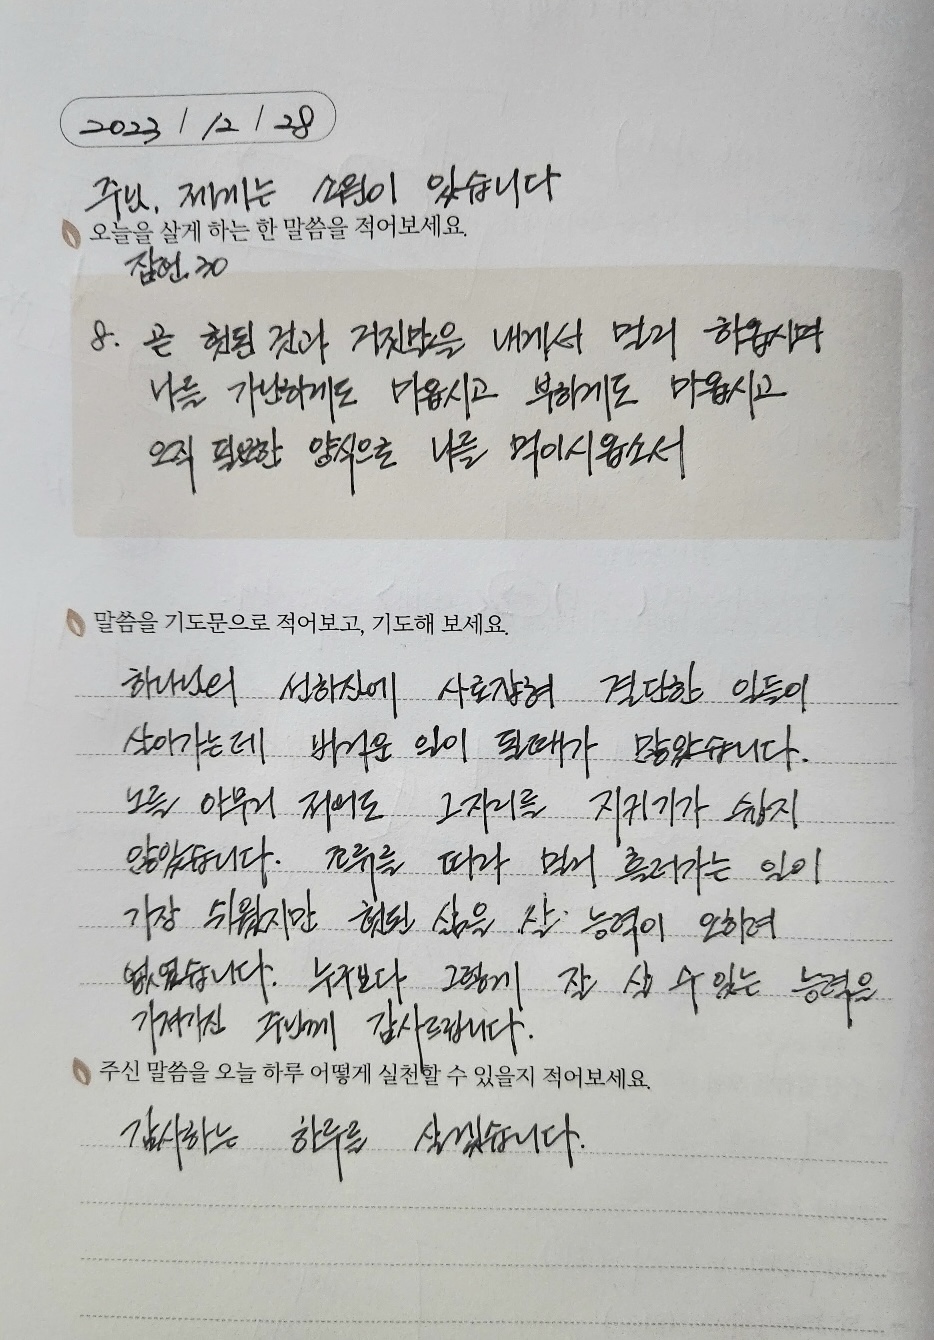 2023 / 12 / 28
주님, 제게는 소원이 있습니다
오늘을 살게 하는 한 말씀을 적어보세요.
잠언. 30
8. 곧 헛된 것과 거짓말을 내게서 멀리 하옵시며
나를 가난하게도 마옵시고 부하게도 마옵시고
오직 필요한 양식으로 나를 먹이시옵소서
말씀을 기도문으로 적어보고, 기도해 보세요.
하나님의 선하심에 사로잡혀 결단한 일들이
살아가는데 버거운 일이 될때가 많았습니다.
노를 아무리 저어도 그자리를 지키기가 쉽지
않았습니다. 조류를 따라 멀리 흘러가는 일이
가장 쉬웠지만 헛된 삶을 살 능력이 오히려
없었습니다. 누구보다 그렇게 잘 살 수 있는 능력을
가져가신 주님께 감사드립니다.
주신 말씀을 오늘 하루 어떻게 실천할 수 있을지 적어보세요.
감사하는 하루를 살겠습니다.